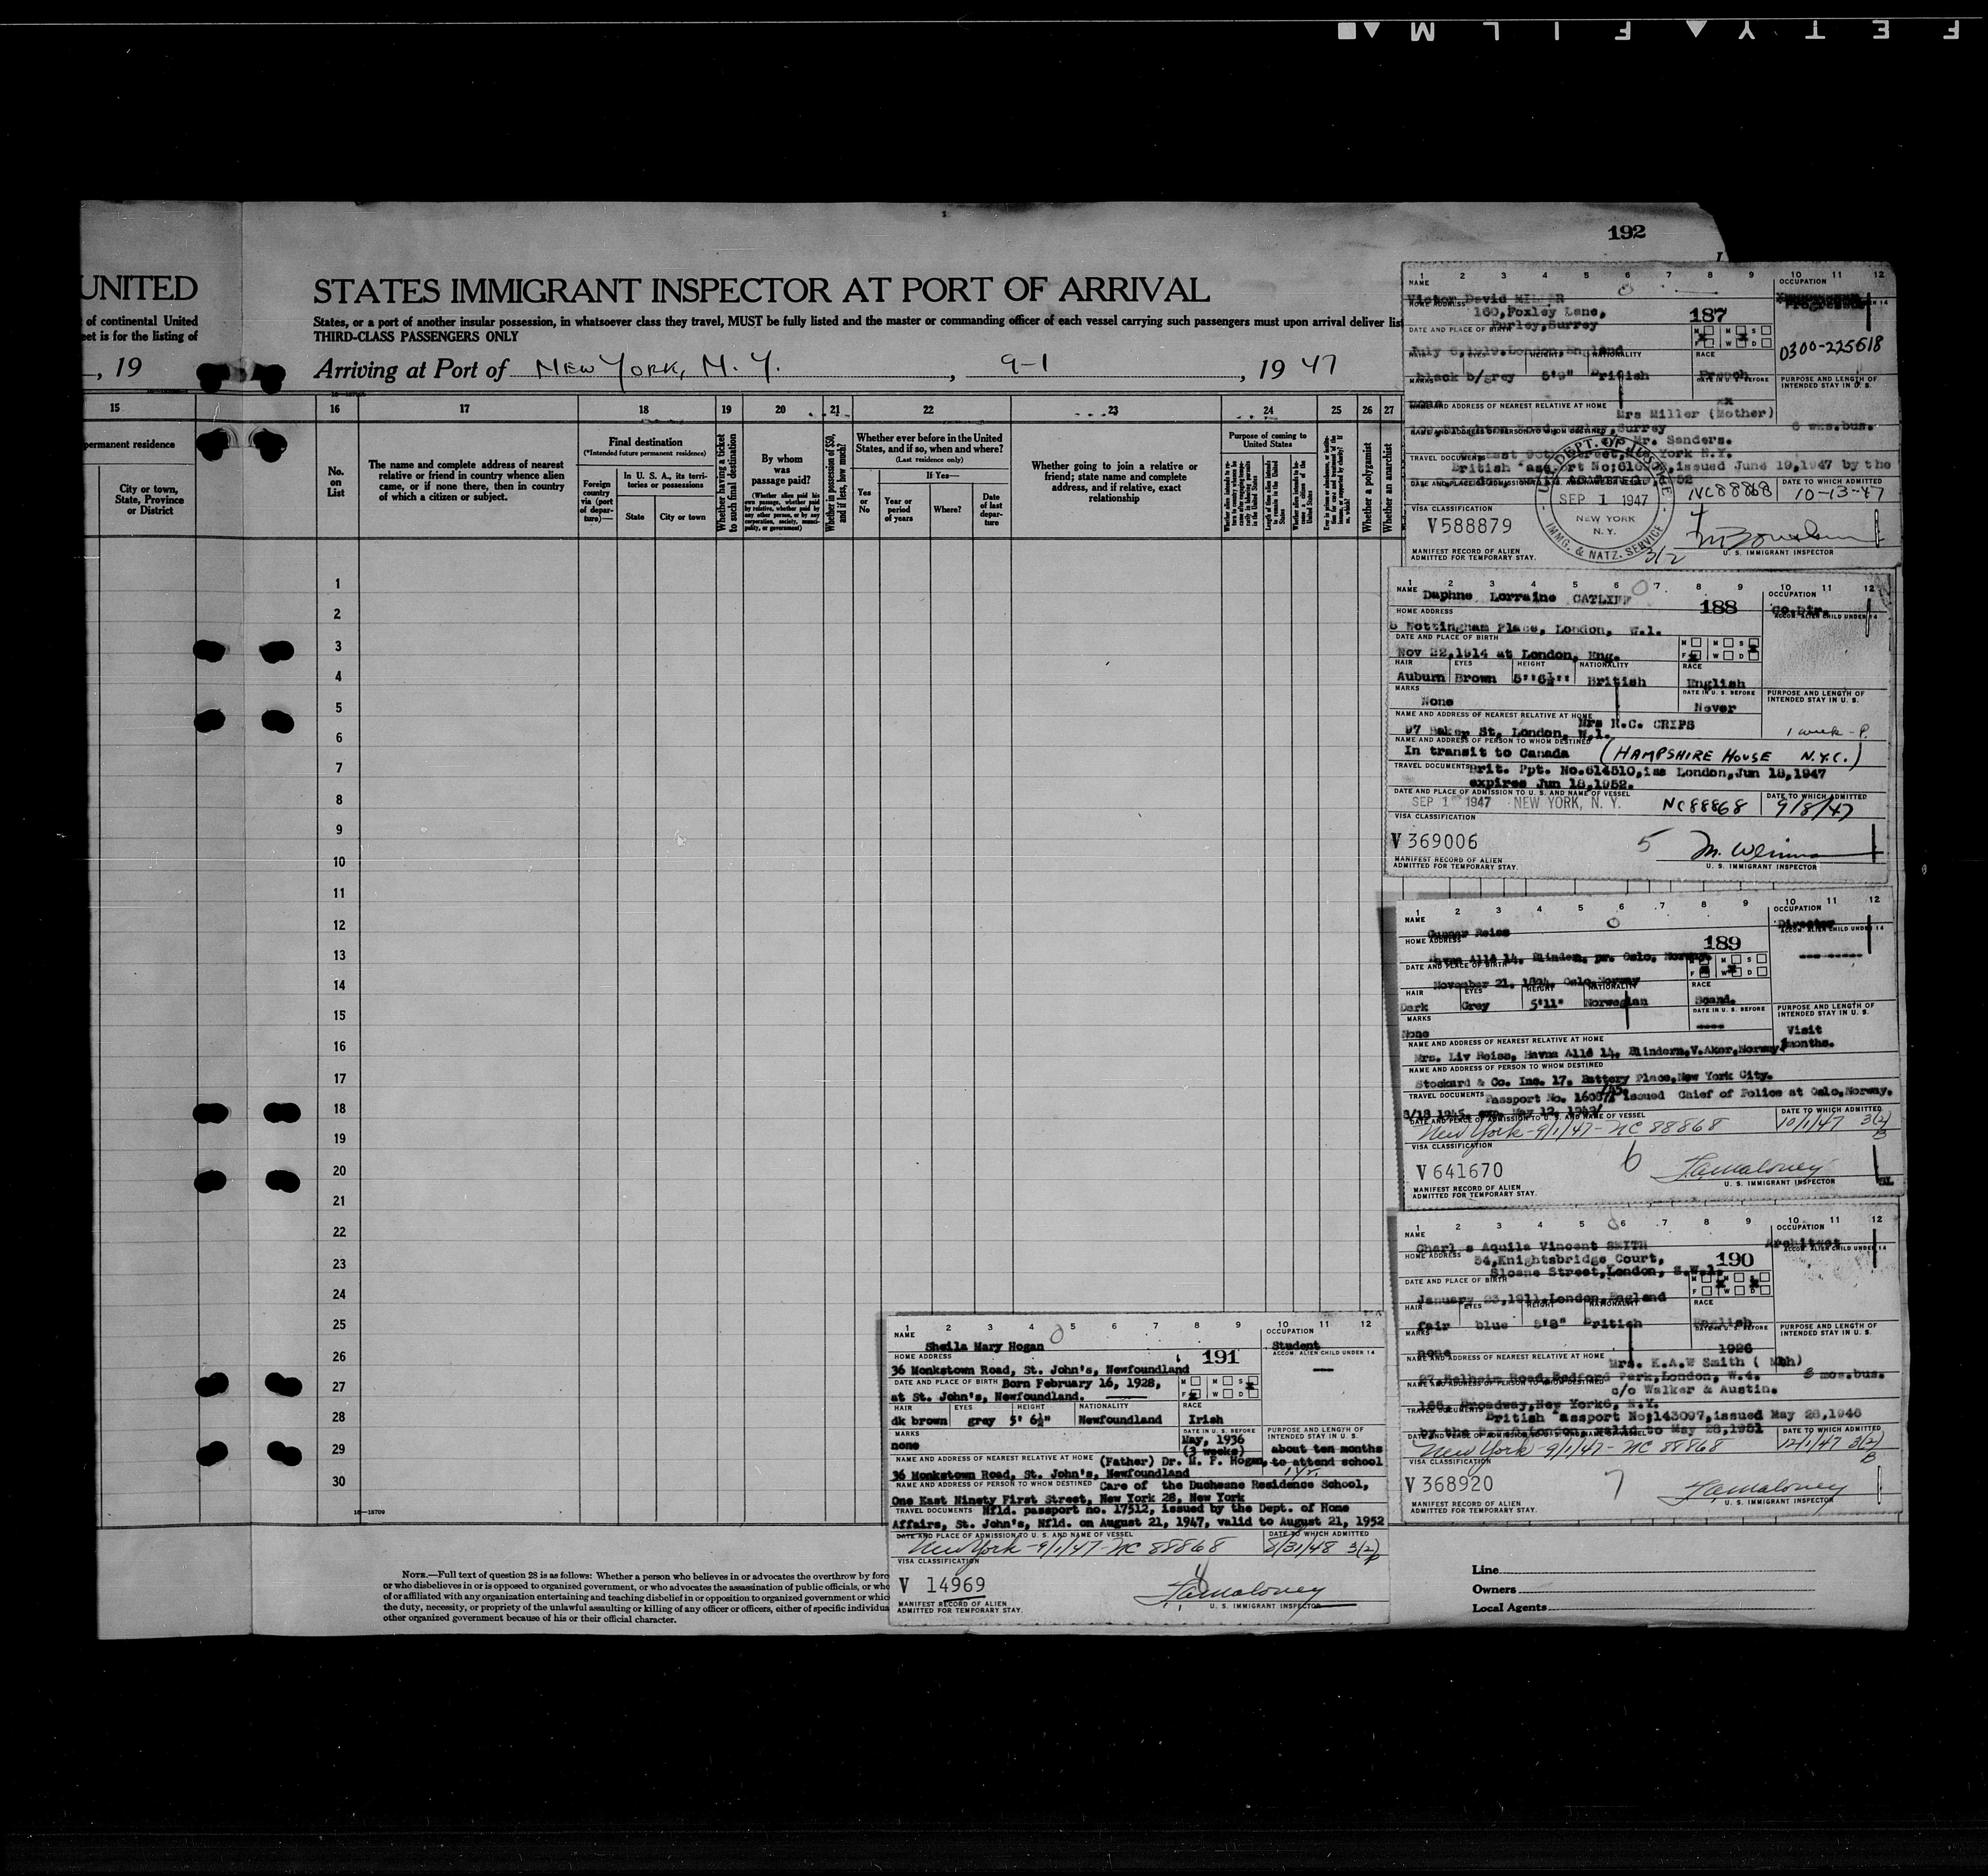 FETY FILM
192
UNITED
of continental United
eet is for the listing of
, 19
15
permanent residence
City or town,
State, Province
or District
STATES IMMIGRANT INSPECTOR AT PORT OF ARRIVAL
States, or a port of another insular possession, in whatsoever class they travel, MUST be fully listed and the master or commanding officer of each vessel carrying such passengers must upon arrival deliver lis
THIRD-CLASS PASSENGERS ONLY
Arriving at Port of NEW YORK, N. Y. , 9-1 , 19 47
16 17 18 19 20 21 22 23 24 25 26 27
No.
on
List
The name and complete address of nearest
relative or friend in country whence alien
came, or if none there, then in country
of which a citizen or subject.
Final destination
(*Intended future permanent residence)
Foreign
country
via (port
of depar-
ture)—
In U. S. A., its terri-
tories or possessions
State
City or town
Whether having a ticket
to such final destination
By whom
was
passage paid?
(Whether alien paid his
own passage, whether paid
by relative, whether paid by
any other person, or by any
corporation, society, munici-
pality, or government)
Whether in possession of $50,
and if less, how much?
Whether ever before in the United
States, and if so, when and where?
(Last residence only)
Yes
or
No
If Yes—
Year or
period
of years
Where?
Date
of last
depar-
ture
Whether going to join a relative or
friend; state name and complete
address, and if relative, exact
relationship
Purpose of coming to
United States
Whether a polygamist
Whether an anarchist
1
2
3
4
5
6
7
8
9
10
11
12
13
14
15
16
17
18
19
20
21
22
23
24
25
26
27
28
29
30
16—18709
NOTE.—Full text of question 28 is as follows: Whether a person who believes in or advocates the overthrow by forc
or who disbelieves in or is opposed to organized government, or who advocates the assassination of public officials, or who
of or affiliated with any organization entertaining and teaching disbelief in or opposition to organized government or whic
the duty, necessity, or propriety of the unlawful assaulting or killing of any officer or officers, either of specific individua
other organized government because of his or their official character.
Line
Owners
Local Agents
1 2 3 4 5 6 7 8 9 10 11 12
NAME
OCCUPATION
Victor David MILLER
HOME ADDRESS
160,Foxley Lane,
187
Purley,Surrey
DATE AND PLACE OF BIRTH
M M S
F W D
0300-225618
July 6,1919.London,England
HEIGHT NATIONALITY RACE
black b/grey 5'9" British French
MARKS
DATE IN U. S. BEFORE
PURPOSE AND LENGTH OF
INTENDED STAY IN U. S.
none
xx
NAME AND ADDRESS OF NEAREST RELATIVE AT HOME
Mrs Miller (Mother)
Surrey
6 wks.bus.
NAME AND ADDRESS OF PERSON TO WHOM DESTINED
Mr. Sanders.
York N.Y.
TRAVEL DOCUMENTS
issued June 19,1947 by the
U. S. DEPT. OF JUSTICE
SEP 1 1947
NEW YORK
N. Y.
IMMG. & NATZ. SERVICE
NC88868
DATE TO WHICH ADMITTED
10-13-47
VISA CLASSIFICATION
V588879
3/2
U. S. IMMIGRANT INSPECTOR
MANIFEST RECORD OF ALIEN
ADMITTED FOR TEMPORARY STAY.
1 2 3 4 5 6 7 8 9 10 11 12
NAME Daphne Lorraine CATLIFF
OCCUPATION
Co.Dir.
ACCOM. ALIEN CHILD UNDER 14
188
HOME ADDRESS
8 Nottingham Place, London, W.1.
DATE AND PLACE OF BIRTH
M M S
F W D
Nov 22,1914 at London, Eng.
HAIR EYES HEIGHT NATIONALITY RACE
Auburn Brown 5''6½'' British English
MARKS
DATE IN U. S. BEFORE
PURPOSE AND LENGTH OF
INTENDED STAY IN U. S.
None
Never
NAME AND ADDRESS OF NEAREST RELATIVE AT HOME
Mrs R.C. CRIPS
97 Baker St, London, W.1.
1 week - P.
NAME AND ADDRESS OF PERSON TO WHOM DESTINED
In transit to Canada (HAMPSHIRE HOUSE N.Y.C.)
TRAVEL DOCUMENTS Brit. Ppt. No.614510,iss London,Jun 18,1947
expires Jun 18,1952.
DATE AND PLACE OF ADMISSION TO U. S. AND NAME OF VESSEL
DATE TO WHICH ADMITTED
SEP 1 1947 NEW YORK, N. Y. NC88868 9/8/47
VISA CLASSIFICATION
V369006
5
U. S. IMMIGRANT INSPECTOR
MANIFEST RECORD OF ALIEN
ADMITTED FOR TEMPORARY STAY.
1 2 3 4 5 6 7 8 9 10 11 12
NAME
OCCUPATION
Gunnar Reiss
Director
ACCOM. ALIEN CHILD UNDER 14
HOME ADDRESS
189
Havna Allé 14, Blindern, pr. Oslo, Norway.
DATE AND PLACE OF BIRTH
M M S
F W D
November 21, 1894, Oslo,Norway
HAIR EYES HEIGHT NATIONALITY RACE
Dark Grey 5'11" Norwegian Scand.
MARKS
DATE IN U. S. BEFORE
PURPOSE AND LENGTH OF
INTENDED STAY IN U. S.
None
Visit
months.
NAME AND ADDRESS OF NEAREST RELATIVE AT HOME
Mrs. Liv Reiss, Havna Allé 14, Blindern,V.Aker,Norway.
NAME AND ADDRESS OF PERSON TO WHOM DESTINED
Stockard & Co. Inc. 17, Battery Place,New York City.
TRAVEL DOCUMENTS Passport No. issued Chief of Police at Oslo,Norway.
DATE AND PLACE OF ADMISSION TO U. S. AND NAME OF VESSEL
DATE TO WHICH ADMITTED
New York - 9/1/47 - NC 88868 10/1/47 3(2)
B
VISA CLASSIFICATION
V641670
6
F.A. Maloney
U. S. IMMIGRANT INSPECTOR
MANIFEST RECORD OF ALIEN
ADMITTED FOR TEMPORARY STAY.
1 2 3 4 5 6 7 8 9 10 11 12
NAME
OCCUPATION
Charles Aquila Vincent SMITH
Architect
ACCOM. ALIEN CHILD UNDER 14
HOME ADDRESS
54,Knightsbridge Court,
190
Sloane Street,London, S.W.1.
DATE AND PLACE OF BIRTH
M M S
F W D
January 23,1911,London,England
HAIR EYES HEIGHT NATIONALITY RACE
fair blue 5'8" British English
MARKS
DATE IN U. S. BEFORE
PURPOSE AND LENGTH OF
INTENDED STAY IN U. S.
none
1926
NAME AND ADDRESS OF NEAREST RELATIVE AT HOME
Mrs. K.A.W Smith
Park,London, W.4.
3 mos.bus.
c/o Walker & Austin.
Broadway,New York6, N.Y.
TRAVEL DOCUMENTS
British Passport No:143097,issued May 28,1946
London, valid to May 28,1951
DATE TO WHICH ADMITTED
New York - 9/1/47 - NC 88868 12/1/47 3(2)
B
VISA CLASSIFICATION
V368920
7
F.A. Maloney
U. S. IMMIGRANT INSPECTOR
MANIFEST RECORD OF ALIEN
ADMITTED FOR TEMPORARY STAY.
1 2 3 4 5 6 7 8 9 10 11 12
NAME
OCCUPATION
Sheila Mary Hogan
Student
ACCOM. ALIEN CHILD UNDER 14
HOME ADDRESS
191
36 Monkstown Road, St. John's, Newfoundland
DATE AND PLACE OF BIRTH Born February 16, 1928,
M M S
F W D
at St. John's, Newfoundland.
HAIR EYES HEIGHT NATIONALITY RACE
dk brown grey 5' 6½" Newfoundland Irish
MARKS
DATE IN U. S. BEFORE
PURPOSE AND LENGTH OF
INTENDED STAY IN U. S.
none
May, 1936
(3 weeks)
about ten months
NAME AND ADDRESS OF NEAREST RELATIVE AT HOME (Father) Dr. H. P. Hogan, to attend school
36 Monkstown Road, St. John's, Newfoundland 1 yr.
NAME AND ADDRESS OF PERSON TO WHOM DESTINED Care of the Duchesne Residence School,
One East Ninety First Street, New York 28, New York
TRAVEL DOCUMENTS Nfld. passport no. 17512, issued by the Dept. of Home
Affairs, St. John's, Nfld. on August 21, 1947, valid to August 21, 1952
DATE AND PLACE OF ADMISSION TO U. S. AND NAME OF VESSEL
DATE TO WHICH ADMITTED
New York - 9/1/47 - NC 88868 8/31/48 3(2)
VISA CLASSIFICATION
V 14969
F.A. Maloney
U. S. IMMIGRANT INSPECTOR
MANIFEST RECORD OF ALIEN
ADMITTED FOR TEMPORARY STAY.